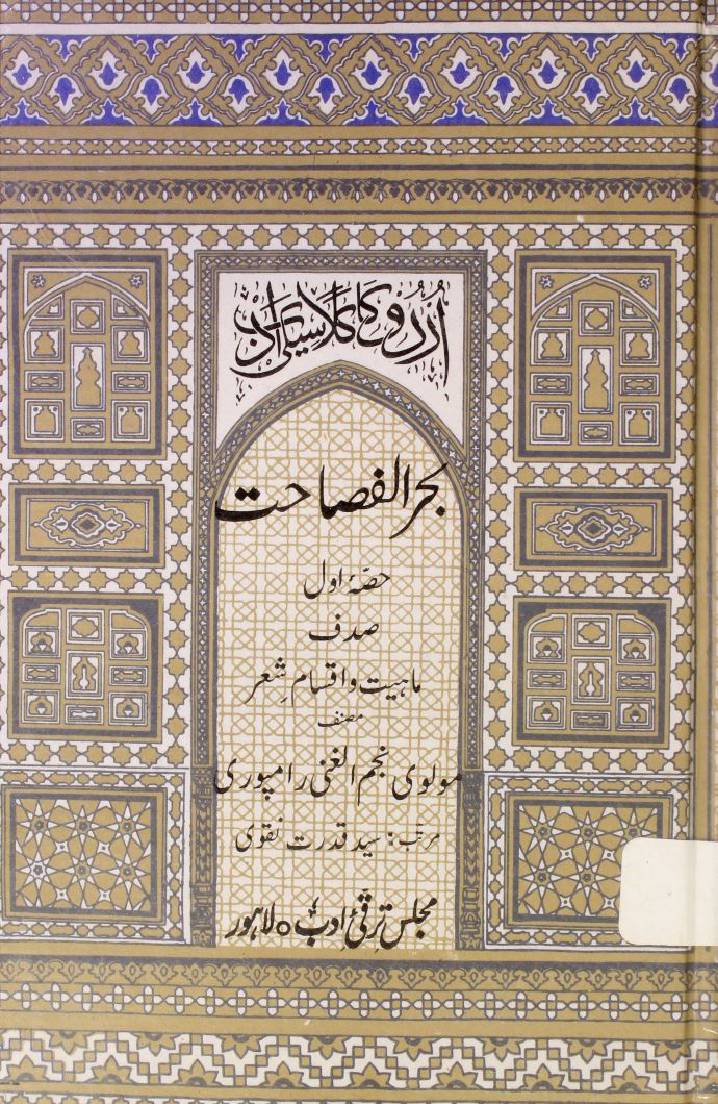 اُردُو کا کلاسیکی ادب
بحر الفصاحت
حصّۂ اول
صدف
ماہیت و اقسامِ شعر
مصنف
مولوی نجم الغنی رامپوری
مرتب: سید قدرت نقوی
مجلس ترقیٔ ادب ٥ لاہور